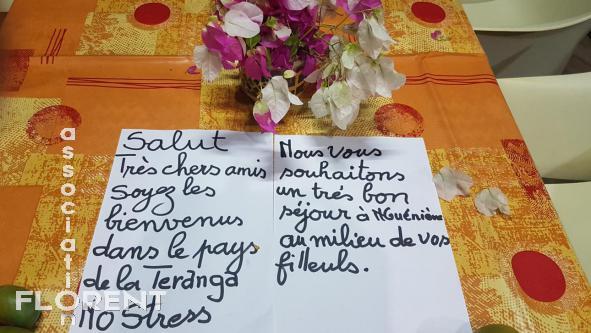 Salut
Très chers amis
Soyez les
bienvenus
dans le pays
de la Teranga
No Stress
Nous vous
souhaitons
un trés bon
séjour à NGuéniène
au milieu de vos
filleuls.
association
FLORENT